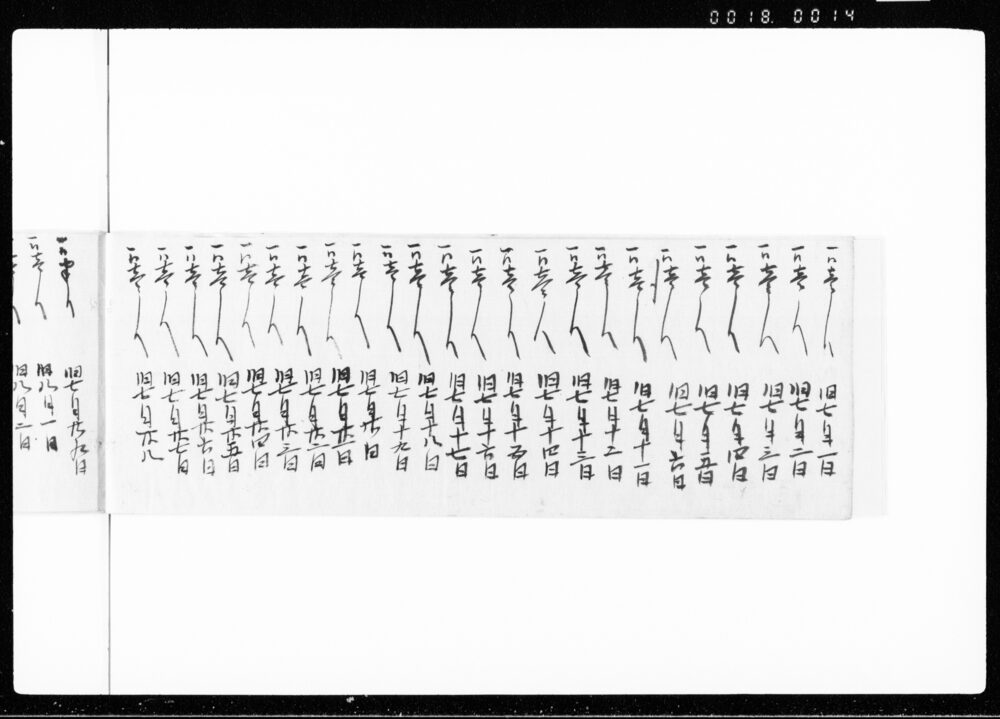 0018. 0014
一同壱人 旧七月一日
一同壱人 旧七月二日
一同壱人 旧七月三日
一同壱人 旧七月四日
一同壱人 旧七月五日
一同壱人 旧七月六日
一同壱人 旧七月十一日
一同壱人 旧七月十二日
一同壱人 旧七月十三日
一同壱人 旧七月十四日
一同壱人 旧七月十五日
一同壱人 旧七月十六日
一同壱人 旧七月十七日
一同壱人 旧七月十八日
一同壱人 旧七月十九日
一同壱人 旧七月廿日
一同壱人 旧七月廿一日
一同壱人 旧七月廿二日
一同壱人 旧七月廿三日
一同壱人 旧七月廿四日
一同壱人 旧七月廿五日
一同壱人 旧七月廿六日
一同壱人 旧七月廿七日
一同壱人 旧七月廿八
一同半人 旧七月廿九日
一同壱人 旧八月一日
旧八月二日